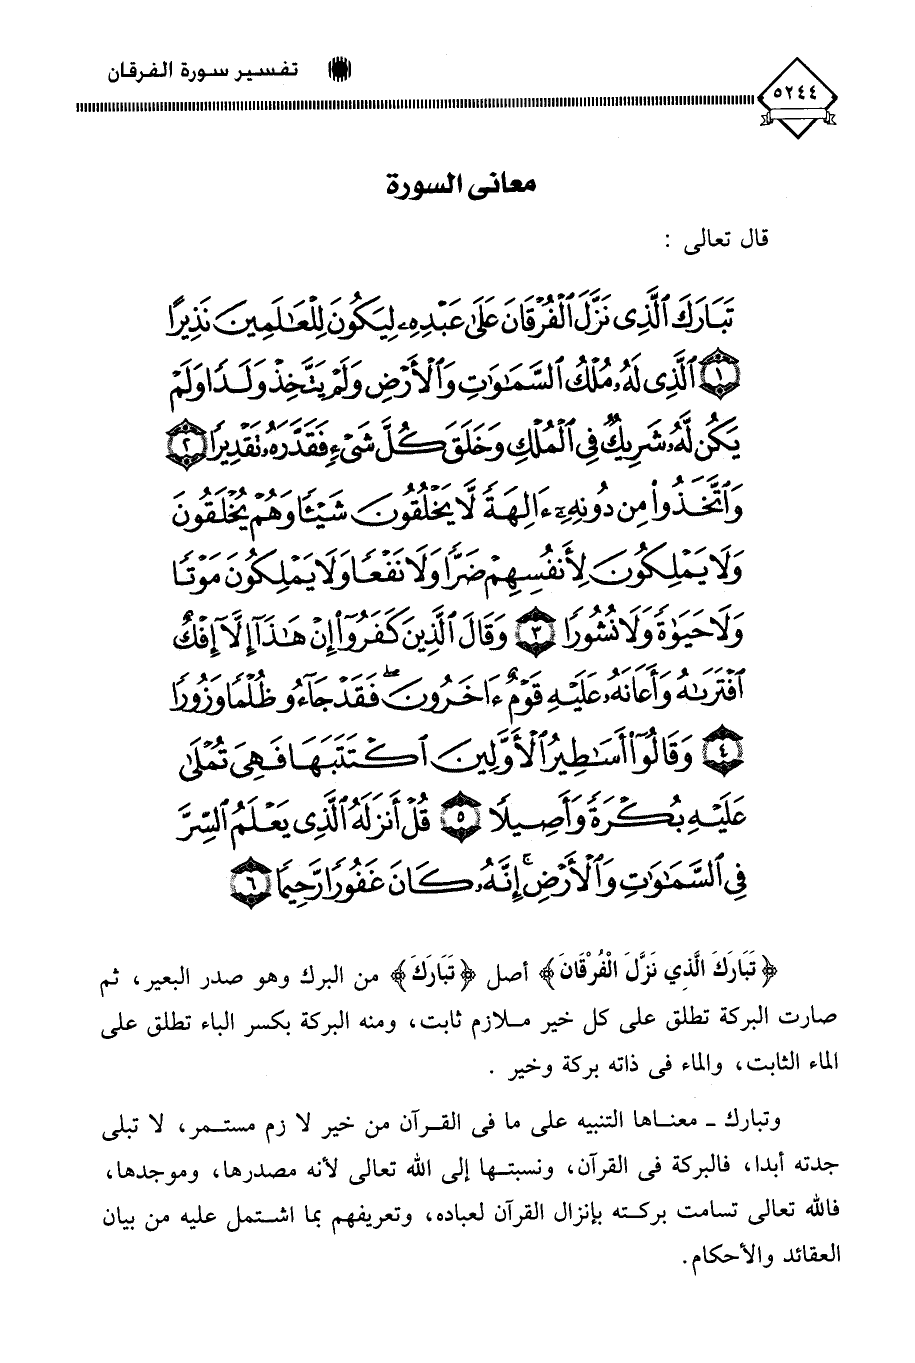 تفسير سورة الفرقان
٥٢٤٤
معانى السورة
قال تعالى :
تَبَارَكَ ٱلَّذِى نَزَّلَ ٱلْفُرْقَانَ عَلَىٰ عَبْدِهِۦ لِيَكُونَ لِلْعَٰلَمِينَ نَذِيرًا
١ ٱلَّذِى لَهُۥ مُلْكُ ٱلسَّمَٰوَٰتِ وَٱلْأَرْضِ وَلَمْ يَتَّخِذْ وَلَدًا وَلَمْ
يَكُن لَّهُۥ شَرِيكٌ فِى ٱلْمُلْكِ وَخَلَقَ كُلَّ شَىْءٍ فَقَدَّرَهُۥ تَقْدِيرًا ٢
وَٱتَّخَذُوا۟ مِن دُونِهِۦٓ ءَالِهَةً لَّا يَخْلُقُونَ شَيْـًٔا وَهُمْ يُخْلَقُونَ
وَلَا يَمْلِكُونَ لِأَنفُسِهِمْ ضَرًّا وَلَا نَفْعًا وَلَا يَمْلِكُونَ مَوْتًا
وَلَا حَيَوٰةً وَلَا نُشُورًا ٣ وَقَالَ ٱلَّذِينَ كَفَرُوٓا۟ إِنْ هَٰذَآ إِلَّآ إِفْكٌ
ٱفْتَرَىٰهُ وَأَعَانَهُۥ عَلَيْهِ قَوْمٌ ءَاخَرُونَ ۖ فَقَدْ جَآءُو ظُلْمًا وَزُورًا
٤ وَقَالُوٓا۟ أَسَٰطِيرُ ٱلْأَوَّلِينَ ٱكْتَتَبَهَا فَهِىَ تُمْلَىٰ
عَلَيْهِ بُكْرَةً وَأَصِيلًا ٥ قُلْ أَنزَلَهُ ٱلَّذِى يَعْلَمُ ٱلسِّرَّ
فِى ٱلسَّمَٰوَٰتِ وَٱلْأَرْضِ ۚ إِنَّهُۥ كَانَ غَفُورًا رَّحِيمًا ٦
﴿تَبَارَكَ الَّذِي نَزَّلَ الْفُرْقَانَ﴾ أصل ﴿تَبَارَكَ﴾ من البرك وهو صدر البعير، ثم
صارت البركة تطلق على كل خير ملازم ثابت، ومنه البركة بكسر الباء تطلق على
الماء الثابت، والماء فى ذاته بركة وخير .
وتبارك ـ معناها التنبيه على ما فى القرآن من خير لا زم مستمر، لا تبلى
جدته أبدا، فالبركة فى القرآن، ونسبتها إلى الله تعالى لأنه مصدرها، وموجدها،
فالله تعالى تسامت بركته بإنزال القرآن لعباده، وتعريفهم بما اشتمل عليه من بيان
العقائد والأحكام.